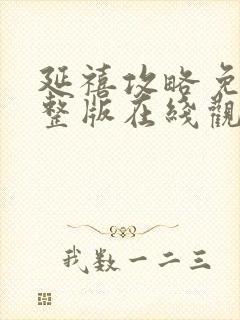 延禧攻略免
整版在线觀
我数一二三